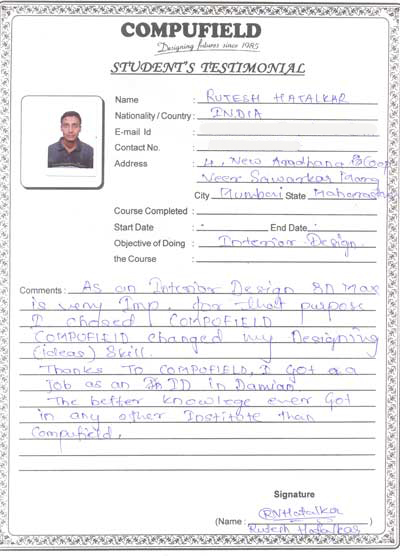 COMPUFIELD
Designing futures since 1985
STUDENT'S TESTIMONIAL
Name : RUTESH HATALKAR
Nationality / Country : INDIA
E-mail Id :
Contact No. :
Address : 4, New Aradhana Coop
Veer Sawarkar Marg
City Mumbai State Maharastra
Course Completed :
Start Date : - End Date -
Objective of Doing : Interior Design
the Course :
Comments : As an Interior Design 3D Max
is very Imp. for that purpose
I chosed COMPUFIELD
COMPUFIELD changed my Designing
(ideas) Skill.
Thanks To COMPUFIELD, I Got a a
Job as an in Damian.
The better knowlege ever Got
in any other Institute than
Compufield.
Signature
RNHatalkar
(Name : Rutesh Hatalkar )